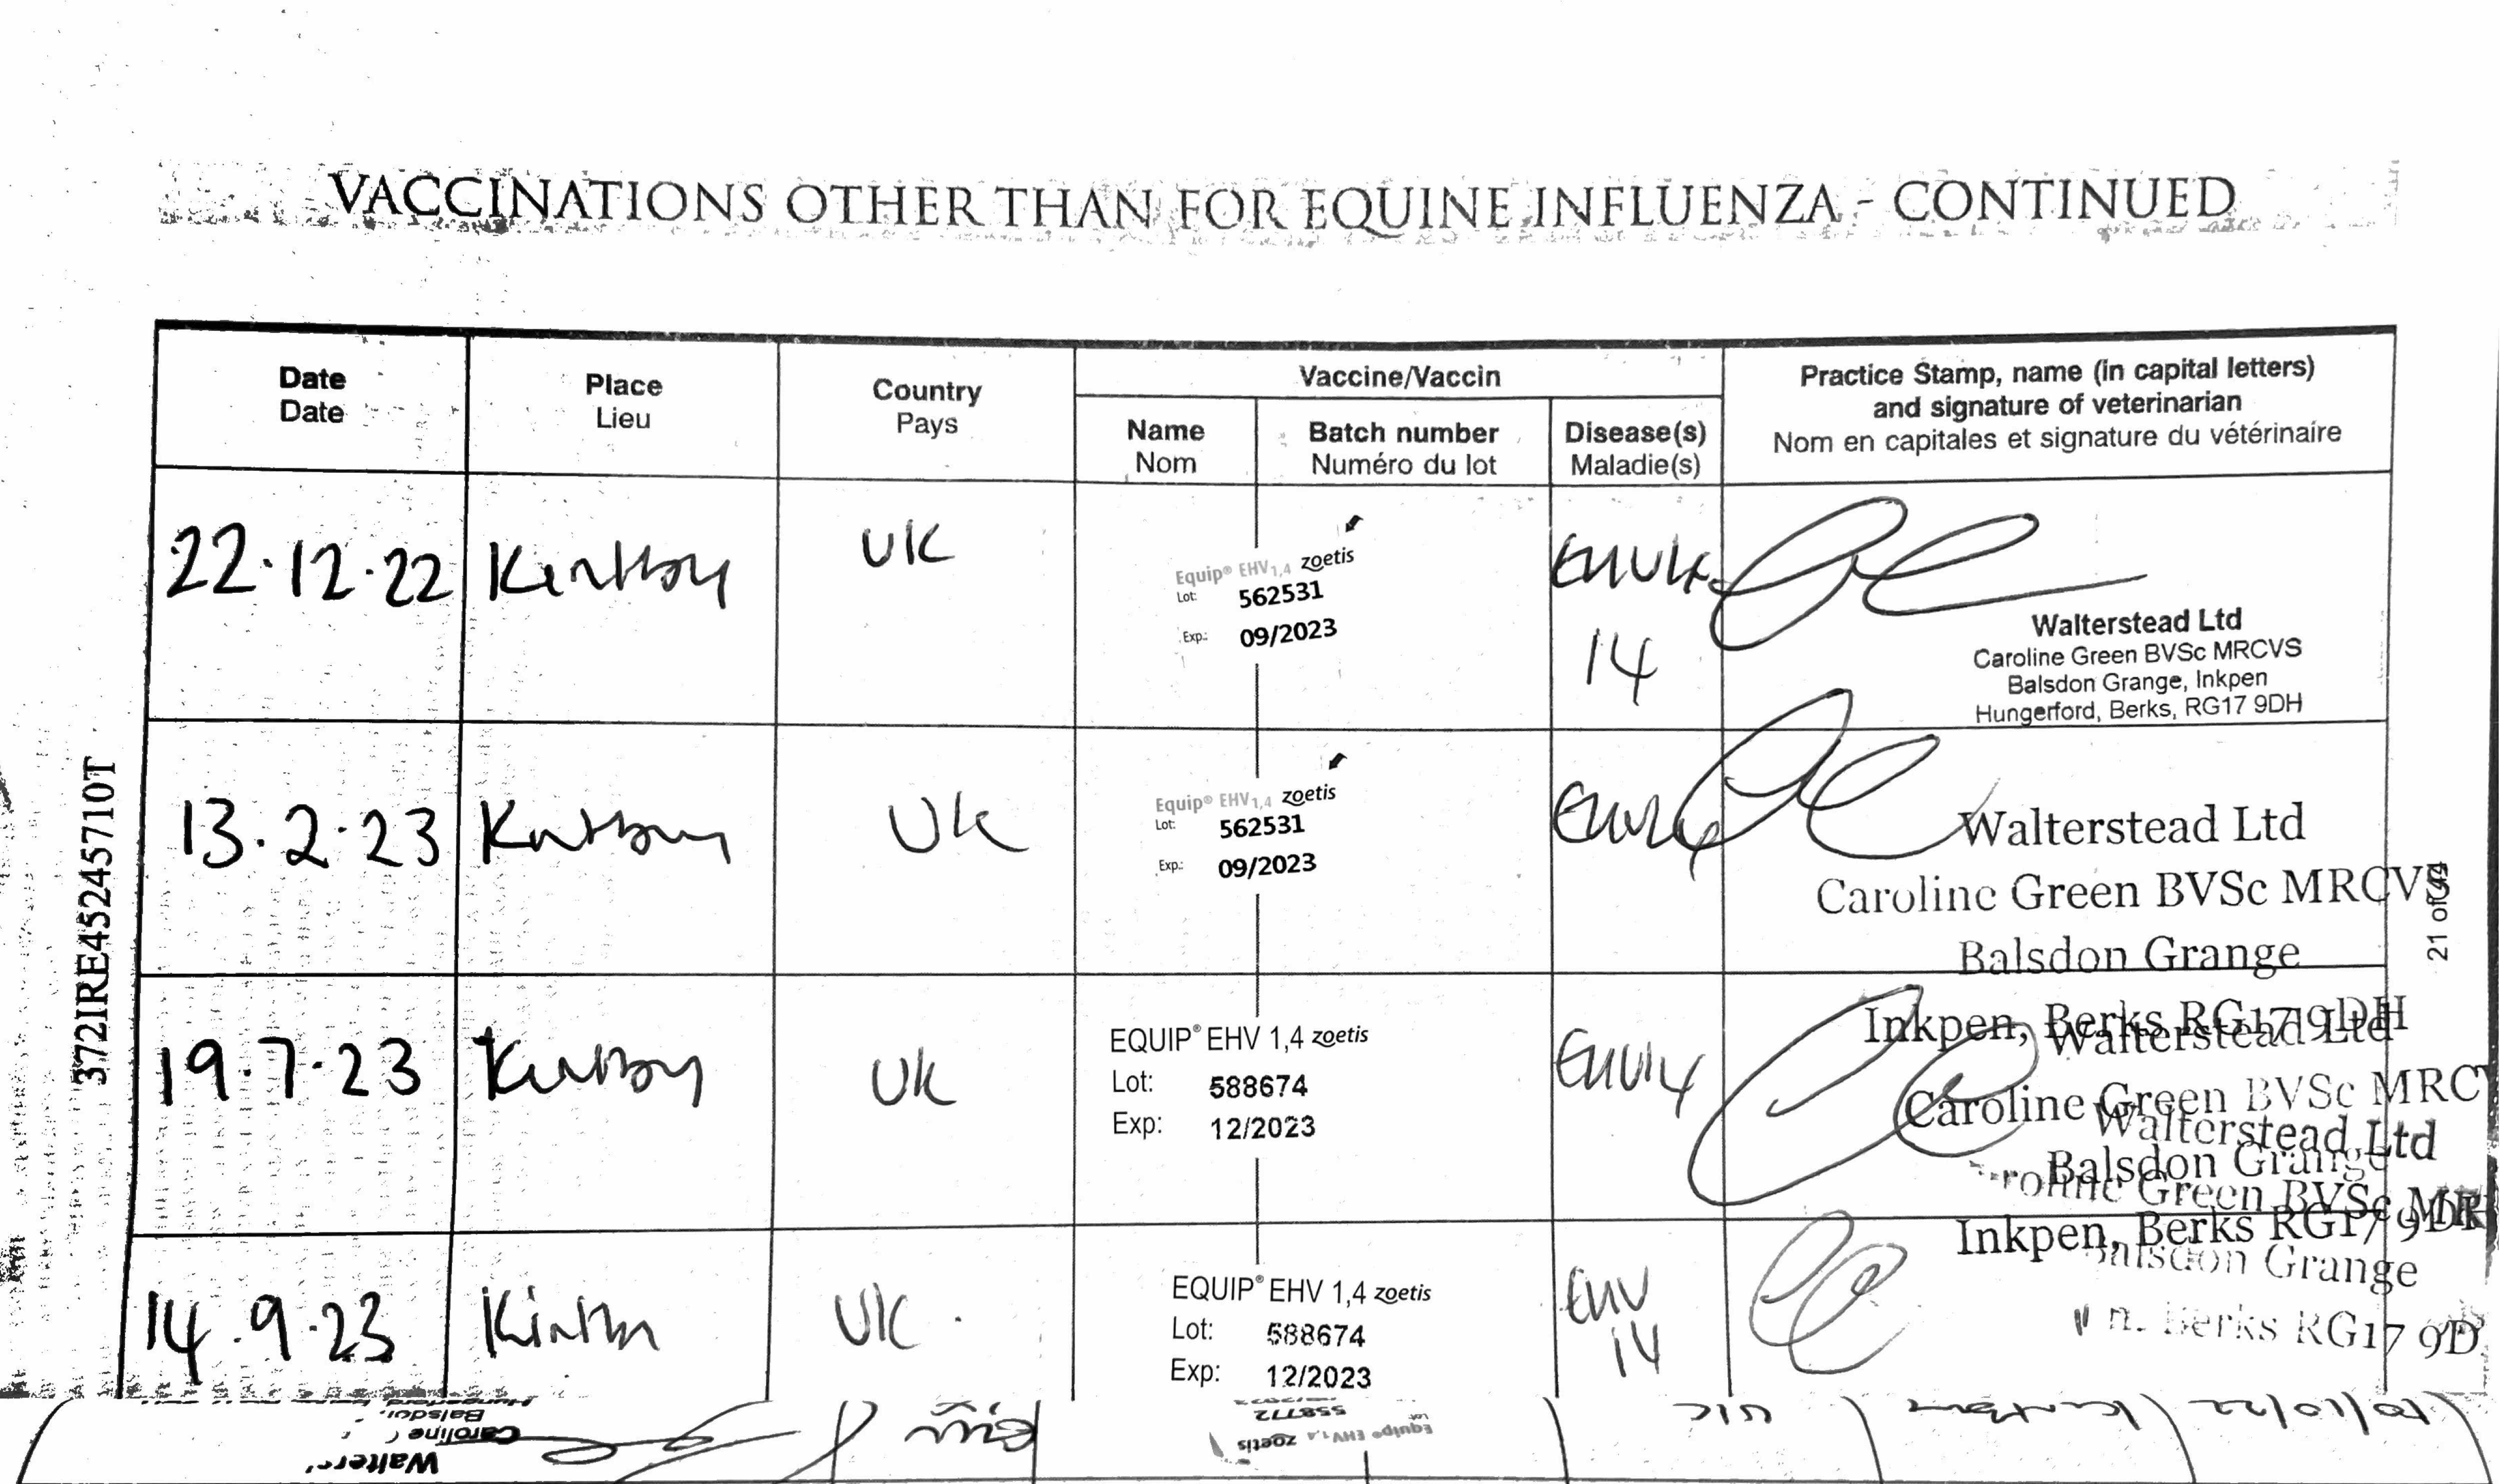 VACCINATIONS OTHER THAN FOR EQUINE INFLUENZA - CONTINUED
Date
Date
Place
Lieu
Country
Pays
Vaccine/Vaccin
Name
Nom
Batch number
Numéro du lot
Disease(s)
Maladie(s)
Practice Stamp, name (in capital letters)
and signature of veterinarian
Nom en capitales et signature du vétérinaire
22.12.22
UK
Equip® EHV1,4 zoetis
Lot: 562531
Exp.: 09/2023
14
Walterstead Ltd
Caroline Green BVSc MRCVS
Balsdon Grange, Inkpen
Hungerford, Berks, RG17 9DH
13.2.23
UK
Equip® EHV1,4 zoetis
Lot: 562531
Exp.: 09/2023
Walterstead Ltd
Caroline Green BVSc MRCVS
Balsdon Grange
Inkpen, Berks RG17 9DH
19.7.23
UK
EQUIP® EHV 1,4 zoetis
Lot: 588674
Exp: 12/2023
EHV14
Walterstead Ltd
Caroline Green BVSc MRC
Balsdon Grange
Inkpen, Berks RG17 9DH
14.9.23
UK.
EQUIP® EHV 1,4 zoetis
Lot: 588674
Exp: 12/2023
EHV
14
Walterstead Ltd
Green BVSc
Grange
Berks RG17 9D
372IRE45245710T
21 of
10/10/22
UK
Equip® EHV1,4 zoetis
558772
Walter
Caroline
Balsdon
Hungerford